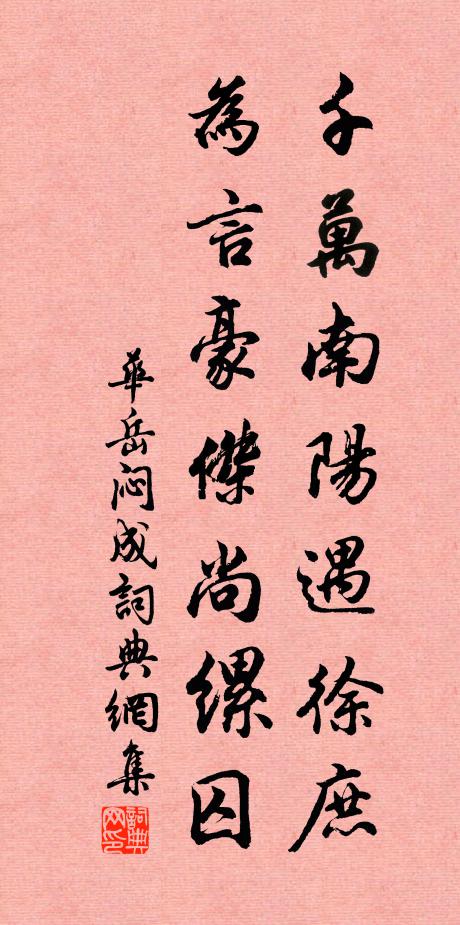 千萬南陽遇徐庶
為言豪傑尚縲囚
華岳悶成詞典網集
詞典
网印